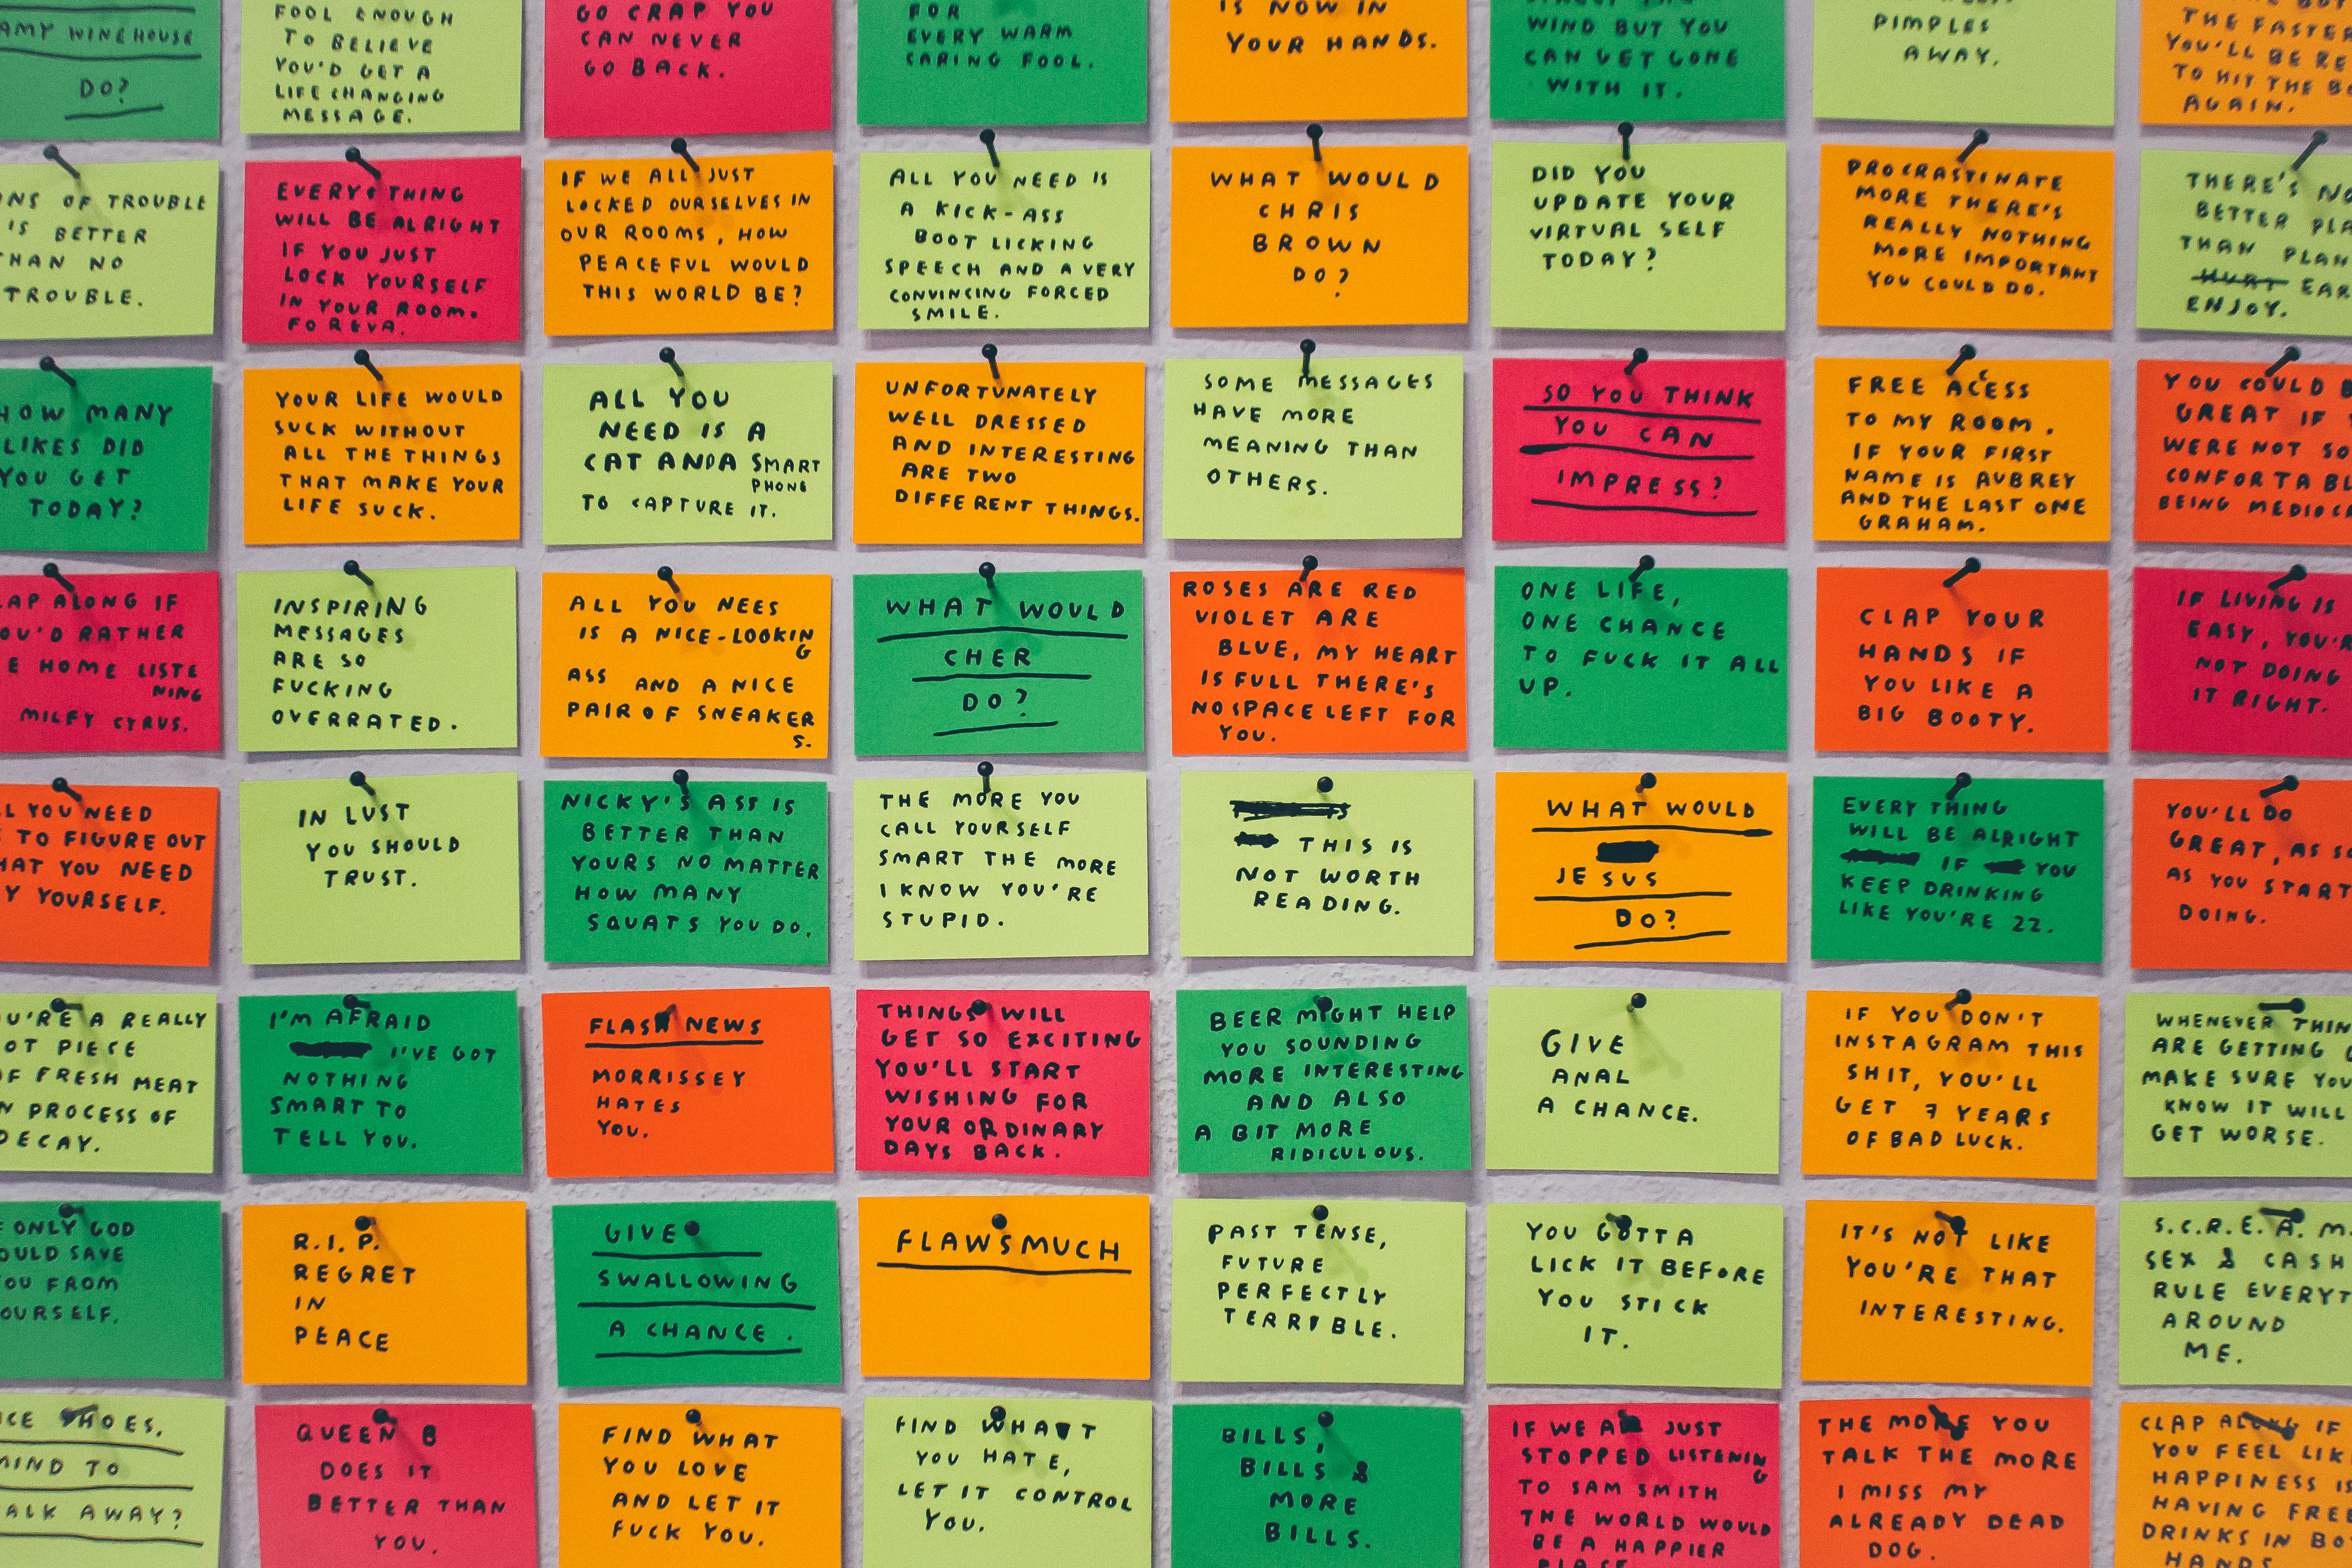 AMY WINEHOUSE
DO?
FOOL ENOUGH
TO BELIEVE
YOU'D GET A
LIFE CHANGING
MESSAGE.
GO CRAP YOU
CAN NEVER
GO BACK.
FOR
EVERY WARM
CARING FOOL.
IS NOW IN
YOUR HANDS.
WIND BUT YOU
CAN GET GONE
WITH IT.
PIMPLES
AWAY.
THE FASTER
YOU'LL BE RE
TO HIT THE BO
AGAIN.
ONS OF TROUBLE
IS BETTER
HAN NO
TROUBLE.
EVERYTHING
WILL BE ALRIGHT
IF YOU JUST
LOCK YOURSELF
IN YOUR ROOM.
FOREVA.
IF WE ALL JUST
LOCKED OURSELVES IN
OUR ROOMS, HOW
PEACEFUL WOULD
THIS WORLD BE?
ALL YOU NEED IS
A KICK-ASS
BOOT LICKING
SPEECH AND A VERY
CONVINCING FORCED
SMILE.
WHAT WOULD
CHRIS
BROWN
DO?
DID YOU
UPDATE YOUR
VIRTUAL SELF
TODAY?
PROCRASTINATE
MORE THERE'S
REALLY NOTHING
MORE IMPORTANT
YOU COULD DO.
THERE'S NO
BETTER PLA
THAN PLAN
HURT EAR
ENJOY.
HOW MANY
LIKES DID
YOU GET
TODAY?
YOUR LIFE WOULD
SUCK WITHOUT
ALL THE THINGS
THAT MAKE YOUR
LIFE SUCK.
ALL YOU
NEED IS A
CAT ANDA SMART
PHONE
TO CAPTURE IT.
UNFORTUNATELY
WELL DRESSED
AND INTERESTING
ARE TWO
DIFFERENT THINGS.
SOME MESSAGES
HAVE MORE
MEANING THAN
OTHERS.
SO YOU THINK
YOU CAN
IMPRESS?
FREE ACCESS
TO MY ROOM.
IF YOUR FIRST
NAME IS AUBREY
AND THE LAST ONE
GRAHAM.
YOU COULD B
GREAT IF
WERE NOT SO
CONFORTABL
BEING MEDIOCR
LAP ALONG IF
OU'D RATHER
E HOME LISTE
NING
MILEY CYRUS.
INSPIRING
MESSAGES
ARE SO
FUCKING
OVERRATED.
ALL YOU NEES
IS A NICE-LOOKIN
G
ASS AND A NICE
PAIR OF SNEAKER
S.
WHAT WOULD
CHER
DO?
ROSES ARE RED
VIOLET ARE
BLUE, MY HEART
IS FULL THERE'S
NO SPACE LEFT FOR
YOU.
ONE LIFE,
ONE CHANCE
TO FUCK IT ALL
UP.
CLAP YOUR
HANDS IF
YOU LIKE A
BIG BOOTY.
IF LIVING IS
EASY, YOU'R
NOT DOING
IT RIGHT.
LL YOU NEED
TO FIGURE OUT
HAT YOU NEED
Y YOURSELF.
IN LUST
YOU SHOULD
TRUST.
NICKY'S ASS IS
BETTER THAN
YOURS NO MATTER
HOW MANY
SQUATS YOU DO.
THE MORE YOU
CALL YOURSELF
SMART THE MORE
I KNOW YOU'RE
STUPID.
THIS IS
NOT WORTH
READING.
WHAT WOULD
JESUS
DO?
EVERYTHING
WILL BE ALRIGHT
IF YOU
KEEP DRINKING
LIKE YOU'RE 22.
YOU'LL DO
GREAT, AS SO
AS YOU START
DOING.
U'RE A REALLY
OT PIECE
OF FRESH MEAT
N PROCESS OF
DECAY.
I'M AFRAID
I'VE GOT
NOTHING
SMART TO
TELL YOU.
FLASH NEWS
MORRISSEY
HATES
YOU.
THINGS WILL
GET SO EXCITING
YOU'LL START
WISHING FOR
YOUR ORDINARY
DAYS BACK.
BEER MIGHT HELP
YOU SOUNDING
MORE INTERESTING
AND ALSO
A BIT MORE
RIDICULOUS.
GIVE
ANAL
A CHANCE.
IF YOU DON'T
INSTAGRAM THIS
SHIT, YOU'LL
GET 7 YEARS
OF BAD LUCK.
WHENEVER THIN
ARE GETTING
MAKE SURE YOU
KNOW IT WILL
GET WORSE.
ONLY GOD
OULD SAVE
OU FROM
OURSELF.
R.I.P.
REGRET
IN
PEACE
GIVE
SWALLOWING
A CHANCE.
FLAWSMUCH
PAST TENSE,
FUTURE
PERFECTLY
TERRIBLE.
YOU GOTTA
LICK IT BEFORE
YOU STICK
IT.
IT'S NOT LIKE
YOU'RE THAT
INTERESTING.
S.C.R.E.A.M.
SEX & CASH
RULE EVERYT
AROUND
ME.
ICE SHOES.
MIND TO
ALK AWAY?
QUEEN B
DOES IT
BETTER THAN
YOU.
FIND WHAT
YOU LOVE
AND LET IT
FUCK YOU.
FIND WHAT
YOU HATE,
LET IT CONTROL
YOU.
BILLS,
BILLS &
MORE
BILLS.
IF WE ALL JUST
STOPPED LISTENIN
G
TO SAM SMITH
THE WORLD WOULD
BE A HAPPIER
PLACE
THE MORE YOU
TALK THE MORE
I MISS MY
ALREADY DEAD
DOG.
CLAP ALONG IF
YOU FEEL LIK
HAPPINESS IS
HAVING FREE
DRINKS IN BO
HANDS